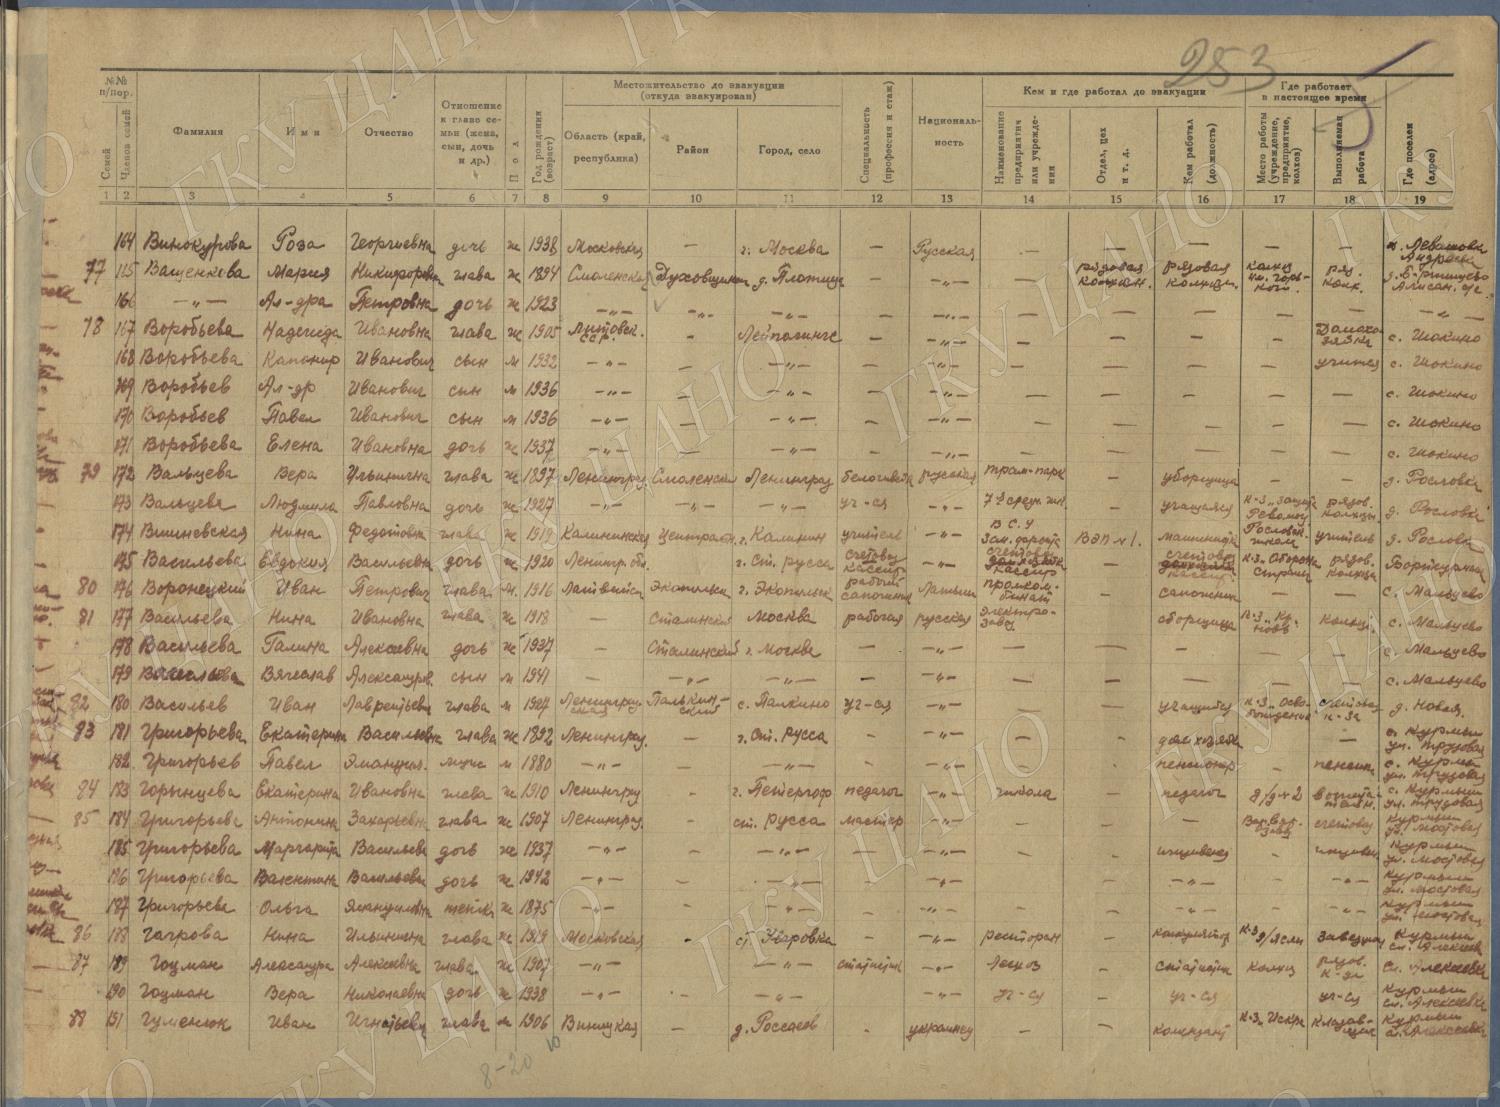 253
№№ п/пор.
Местожительство до эвакуации (откуда эвакуирован)
Кем и где работал до эвакуации
Где работает в настоящее время
Семей
Членов семей
Фамилия
Имя
Отчество
Отношение к главе семьи (жена, сын, дочь и др.)
Пол
Год рождения (возраст)
Область (край, республика)
Район
Город, село
Специальность (профессия и стаж)
Националь-ность
Наименование предприятия или учреждения
Отдел, цех и т. д.
Кем работал (должность)
Место работы (учреждение, предприятие, колхоз)
Выполняемая работа
Где поселен (адрес)
1 2 3 4 5 6 7 8 9 10 11 12 13 14 15 16 17 18 19
164 Винокурова Роза Георгиевна дочь ж 1938 Московская — г. Москва — Русская — — — — —
77 165 Ващенкова Мария Никифоровна глава ж 1894 Смоленская Духовщинск д. Плотище — —„— — рядовая колхозн. рядовая колхозн. колхоз им. Горького ряд. колх.
166 —„— Ал-дра Петровна дочь ж 1923 —„— —„— —„— — —„— — — — — — —„—
78 167 Воробьева Надежда Ивановна глава ж 1905 Литовск. ССР. - — —„— — — — — Домохозяйка с. Шокино
168 Воробьева Иванович сын м 1932 —„— —„— — —„— — — — — учится с. Шокино
169 Воробьев Ал-др Иванович сын м 1936 —„— —„— — —„— — — — — — с. Шокино
170 Воробьев Павел Иванович сын м 1936 —„— —„— — —„— — — — — — с. Шокино
171 Воробьева Елена Ивановна дочь ж 1937 —„— —„— — —„— — — — — — с. Шокино
79 172 Вальцева Вера Ильинична глава ж 1897 Ленинград Смоленск Ленинград русская трам-парк — уборщица — — д. Рословка
173 Вальцева Людмила Павловна дочь ж 1927 —„— —„— —„— уч-ся —„— — учащаяся рядов. колхозн. д. Рословка
174 Вишневская Нина Федотовна глава ж 1919 Калининская Централь. г. Калинин учитель —„— учитель д. Рословка
175 Васильева Евдокия Васильевна дочь ж 1920 Ленингр. обл. г. Ст. русса счетовод кассир —„— счетовод кассир — к-з Оборона страны рядов. колхозн.
80 176 Воронецкий Иван Петрович глава м. 1916 Латвийск г. рабочий сапожник Латыш промкомбинат — сапожник — — с. Мальцево
81 177 Васильева Нина Ивановна глава ж 1918 — Сталинский Москва рабочая русская электрозавод сборщица с. Мальцево
178 Васильева Галина Алексеевна дочь ж 1937 — Сталинский г. Москва — —„— — — - — — с. Мальцево
179 Васильева Вячеслав Александров. сын м 1941 — —„— —„— — —„— — — — — — с. Мальцево
82 180 Васильев Иван Лаврентьев. глава м 1927 Ленинградская с. Палкино уч-ся —„— — — учащийся к-з „Освобождение д. Новая
83 181 Григорьева Екатерина Васильевна глава ж 1892 Ленинград. — г. Ст. Русса — —„— — — домхозяйка — с. Курмыш ул. Трудовая
182 Григорьев Павел м 1880 —„— —„— — —„— — — пенсионер - пенсион. с. Курмыш ул. Трудовая
84 183 Горынцева Екатерина Ивановна глава ж 1910 Ленинград - г. Петергоф педагог —„— школа — педагог д/д №2 воспитательн. с. Курмыш ул. Трудовая
85 184 Григорьева Антонина Захарьевна глава ж 1907 Ленинград. ст. Русса мастер —„— — — — счетовод Курмыш ул. Мостовая
185 Григорьева Маргарита Васильевна дочь ж 1937 —„— —„— — —„— — — иждивенка - иждивен. Курмыш ул. Мостовая
186 Григорьева Валентина Васильевна дочь ж 1942 —„— —„— — —„— — — —„— - —„— Курмыш ул. Мостовая
187 Григорьева Ольга ж 1875 —„— —„— — —„— — — —„— - —„— Курмыш ул. Мостовая
86 188 Гагрова Нина Ильинична глава ж 1919 Московская - ст. Уваровка — —„— ресторан — к-з д/ясли Заведующ. Курмыш сл. Алексеевка
87 189 Гоцман Александра Алексеевна глава ж 1907 —„— —„— статистик —„— Лесхоз — статистик колхоз рядов. к-за сл. Алексеевка
190 Гоцман Вера Николаевна дочь ж 1938 —„— —„— — —„— уч-ся — уч-ся уч-ся Курмыш сл. Алексеевка
88 191 Гуменюк Иван Игнатьевич глава м 1906 Винницкая — — украинец — — комендант к-з „Искра кладовщик Курмыш сл. Алексеевка
8-20
ГКУ ЦАНО